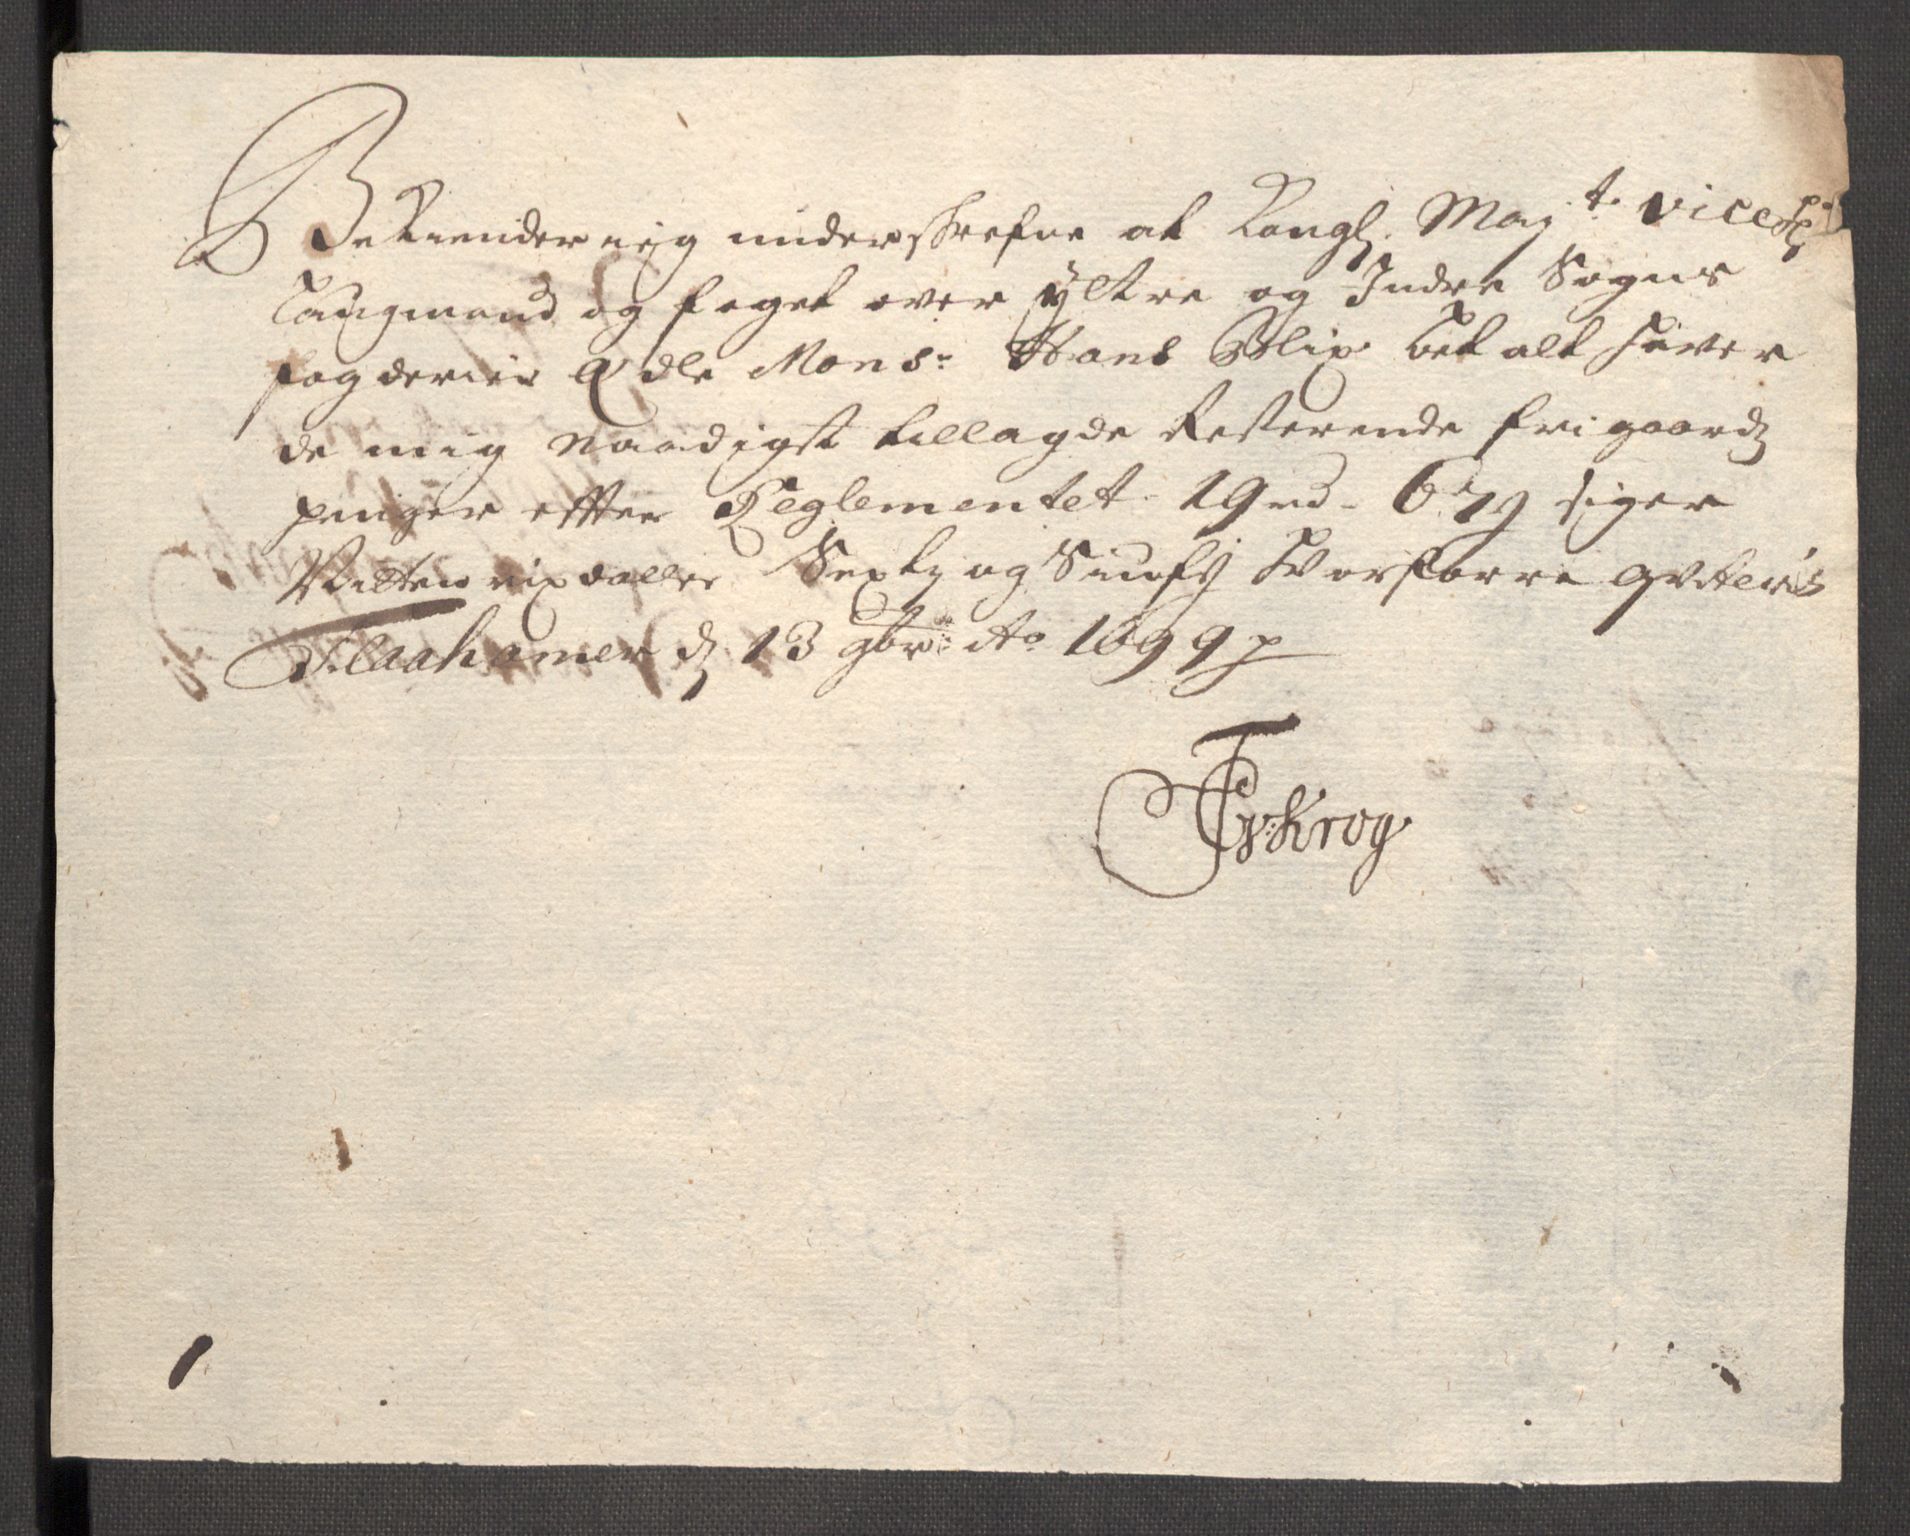 Bekiender ieg underskrefne at Kongl. Maj.t vice
Laugmand og foget over Yttre og Indre Sogns
fogderier Edle Mons:r Hans Blix betalt hafver
de mig naadigst tillagde Resterende frigaards
penger efter Reglementet 19 rd - 67 s siger
Nitten rixdaller Sexty og Siufs hvorforre qvitteris
Flaahamer d 13 9br: Ao 1699 p
G: Krog